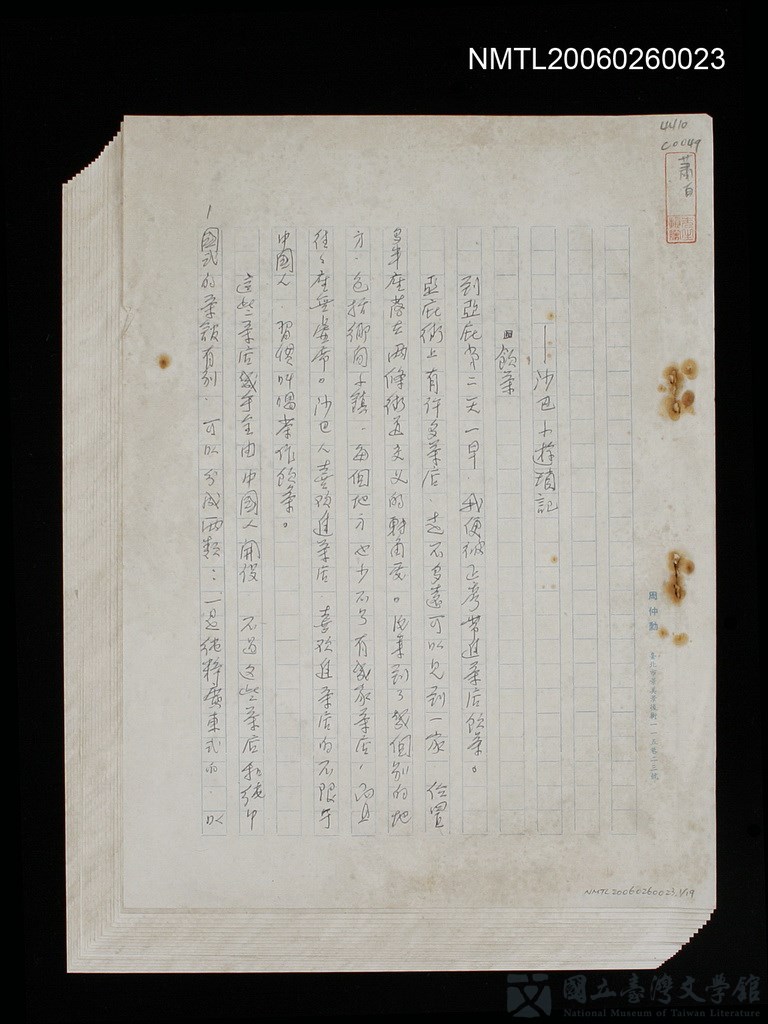 NMTL20060260023
4410
C0049
蕭白
——沙巴小遊瑣記
飲茶
到亞庇第二天一早,我便被正彥帶進茶店飲茶。
亞庇街上有許多茶店 走不多遠可以見到一家 位置
多半座落在兩條街道交叉的轉角處。後來到了幾個別的地
方,包括鄉間小鎮,每個地方也少不了有幾家茶店,而且
往往座無虛席。沙巴人喜歡進茶店,喜歡進茶店的不限于
中國人,習慣叫喝茶作飲茶。
這些茶店幾乎全由中國人開設 不過這些茶店和純中
國式的茶館有別,可以分成兩類:一是純粹廣東式的,以
1
周仲勳
NMTL20060260023,1/19
國立臺灣文學館
National Museum of Taiwan Literature